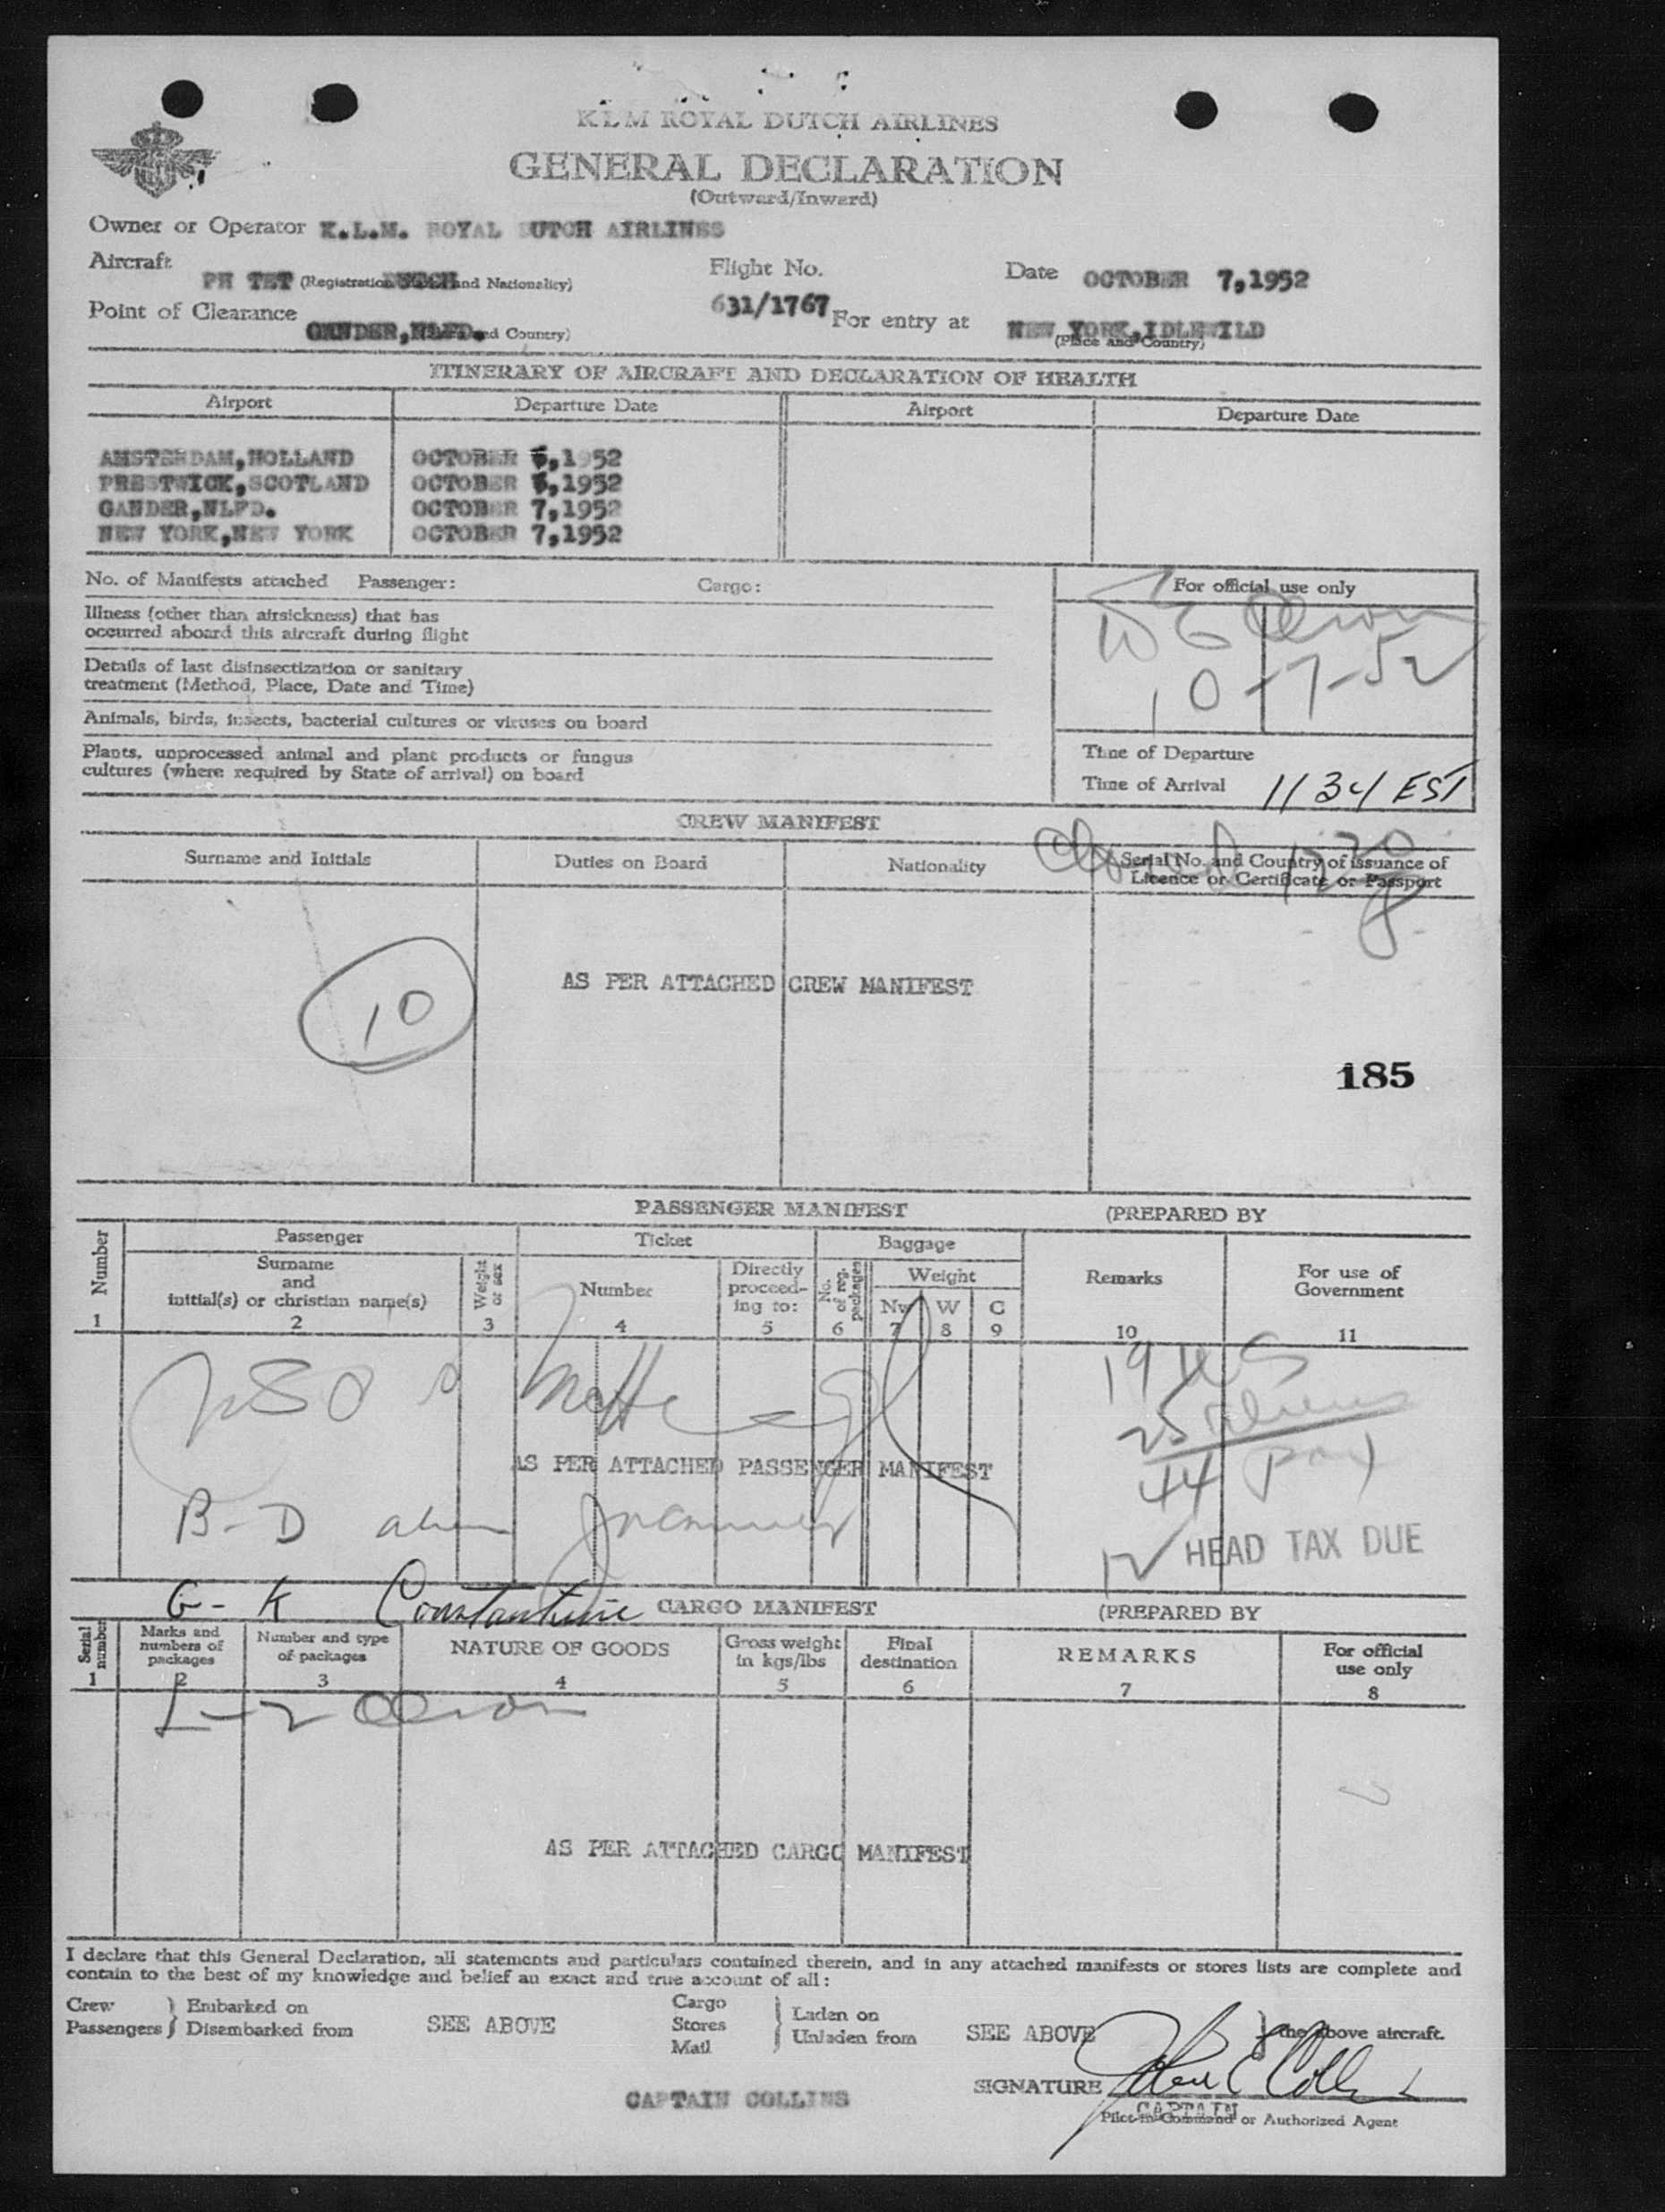 KLM ROYAL DUTCH AIRLINES
GENERAL DECLARATION
(Outward/Inward)
Owner or Operator K.L.M. ROYAL DUTCH AIRLINES
Aircraft PH TET (Registration and Nationality) Flight No. 631/1767 Date OCTOBER 7,1952
Point of Clearance GANDER,NLFD. (and Country) For entry at NEW YORK,IDLEWILD
(Place and Country)
ITINERARY OF AIRCRAFT AND DECLARATION OF HEALTH
Airport Departure Date Airport Departure Date
AMSTERDAM,HOLLAND OCTOBER ,1952
PRESTWICK,SCOTLAND OCTOBER ,1952
GANDER,NLFD. OCTOBER 7,1952
NEW YORK,NEW YORK OCTOBER 7,1952
No. of Manifests attached Passenger: Cargo:
For official use only
Illness (other than airsickness) that has
occurred aboard this aircraft during flight
Details of last disinsectization or sanitary
treatment (Method, Place, Date and Time)
10-7-52
Animals, birds, insects, bacterial cultures or viruses on board
Plants, unprocessed animal and plant products or fungus
cultures (where required by State of arrival) on board
Time of Departure
Time of Arrival 1134 EST
CREW MANIFEST
Surname and Initials Duties on Board Nationality Serial No. and Country of issuance of
Licence or Certificate or Passport
AS PER ATTACHED CREW MANIFEST
10
185
PASSENGER MANIFEST (PREPARED BY
Number Passenger Ticket Baggage
Surname
and
initial(s) or christian name(s)
Weight or sex
Number
Directly
proceed-
ing to:
No. of reg. packages
Weight
N W C
Remarks
For use of
Government
1 2 3 4 5 6 7 8 9 10 11
19
25 aliens
44
AS PER ATTACHED PASSENGER MANIFEST
B-D
HEAD TAX DUE
G-K Constantine
CARGO MANIFEST (PREPARED BY
Serial number
Marks and
numbers of
packages
Number and type
of packages
NATURE OF GOODS
Gross weight
in kgs/lbs
Final
destination
REMARKS
For official
use only
1 2 3 4 5 6 7 8
AS PER ATTACHED CARGO MANIFEST
I declare that this General Declaration, all statements and particulars contained therein, and in any attached manifests or stores lists are complete and
contain to the best of my knowledge and belief an exact and true account of all:
Crew
Passengers } Embarked on
Disembarked from SEE ABOVE
Cargo
Stores
Mail } Laden on
Unladen from SEE ABOVE } the above aircraft.
SIGNATURE
CAPTAIN COLLINS
CAPTAIN
Pilot-in-Command or Authorized Agent